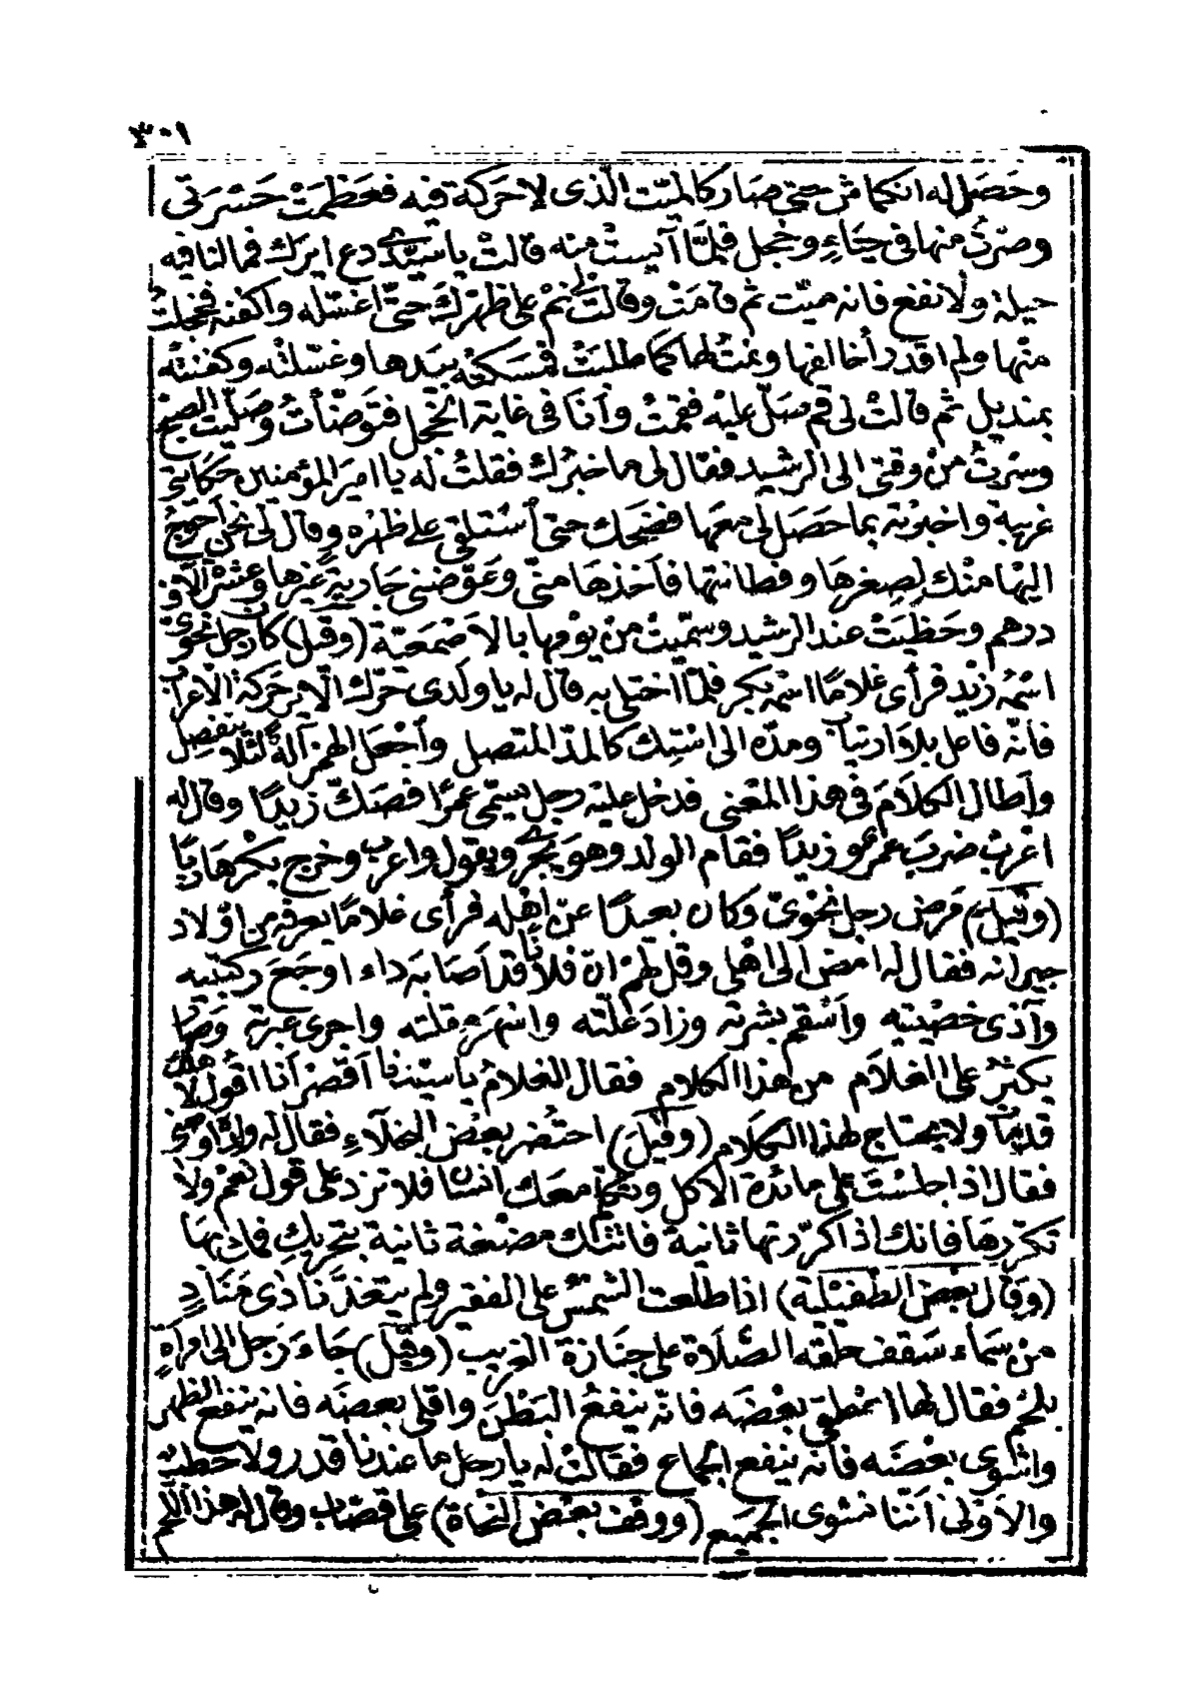 ٣٠١
وحَصَل له انكماش حتى صَار كالميّت الّذى لا حَركة فيه فعَظمَتْ حَسْرتى
وصرْتُ منها فى حَياءٍ وخجل فلمّا آيستْ منه قالتْ يا سيّدى دع ايرك فما لنا فيه
حيلة ولا نفع فانه ميّت ثم قامَتْ وقالت نمْ على ظهْرك حتى اغسّله واكفنه فخجلتُ
منْها ولم اقدر أخالفها ونمتُ لها كما طلبَتْ فمسَكتْه بيَدها وغسّلتْه وكفنتْه
بمنديل ثم قالتْ لى قم صَلّ عليْه فقمْتُ وأنا فى غاية الخجل فتوَضّأتُ وصَلّيت الصبح
وسرْتُ منْ وقتى الى الرشيد فقال لى ما خبرُك فقلتُ له يا اميرَ المؤمنين حكايتى
غريبة واخبرْته بما حصَل لى معَها فضحك حتى أسْتلقى على ظهْره وقال لى نحن أحوجُ
اليْها منْك لصِغرهَا وفطانتها فأخذهَا منّى وعَوّضنى جَارية غيرَها وعشرْ آلاف
درهم وحَظيَتْ عند الرشيد وسمّيتْ منْ يوْمها بالاصْمَعيّة (وقيل) كان رجل نحْوىّ
اسْمُه زيْد فرأى غلامًا اسْمه بكر فلمّا اختلى به قال له يا ولَدى حَرّك الاير حَركة الاعرَاب
فانّه فاعل بلا وا رتياب ومدّه الى اسْتِك كالمدّ المتصل وأجْعَل الهمز آلة لئلا ينفصل
وأطال الكلامَ فى هذا المعْنى فدخل عليْه رجل يسمّى عمرًا فصَكّ زيدًا وقال له
اعْربْ ضربَ عمرٌو زيْدًا فقام الولد وهوَ يجرى ويقول واعرب وخرج بكرْ هَاربًا
(وقيلَ) مَرض رجل نحْوىّ وكان بعيدًا عن أهْله فرأى غلامًا يعرفه من اوْلاد
جيرانه فقال له امْض الى اهْلى وقل لهم انّ فلانًا قد أصَابهَ داء اوجَعَ ركبتيه
وآذى خصْيتيه وأسْقم بشرته وزادَ علّته واسْهرَ مقلته واجرى عبرته وَصَار
يكثرُ على الغلاَم من هذا الكلام فقال الغلامُ يا سيّدنا أقصر أنا اقولُ لهم هلك
قديمًا ولا يحتاج لهذا الكلام (وقيلَ) احتضر بعْض البخلاءِ فقال له ولدُه أوصنى
فقال اذا جلسْتَ على مائدة الاكل وتكلّم معَك انسَان فلا تزد على قول نعَمْ ولا
تكرّرهَا فانك اذا كرّرتها ثانية فاتتْك مضْغة ثانية بتحريك فمك بهَا
(وَقال بعْض الطّفيْليّة) اذا طلعت الشمْسُ على الفقير ولم يتغدَّ نادى مَنَادٍ
منْ سَماء سَقف حلقه الصّلاَة على جنَازة الغريب (وقيل) جَاءَ رَجل الى امرأةٍ
بلحْم فقال لها اسْلقى بعْضَه فانّه ينفعُ البَطْنَ واقلى بعضَه فانه ينفع الظهر
واشوى بعْضَه فأنّه ينفع الجماع فقالتْ له يا رجل ما عندنا قدر ولا حطبٌ
والاوْلى أننا نشوى الجميع (ووقف بعْض النحَاة) على قصّاب وقال له هذا اللحم